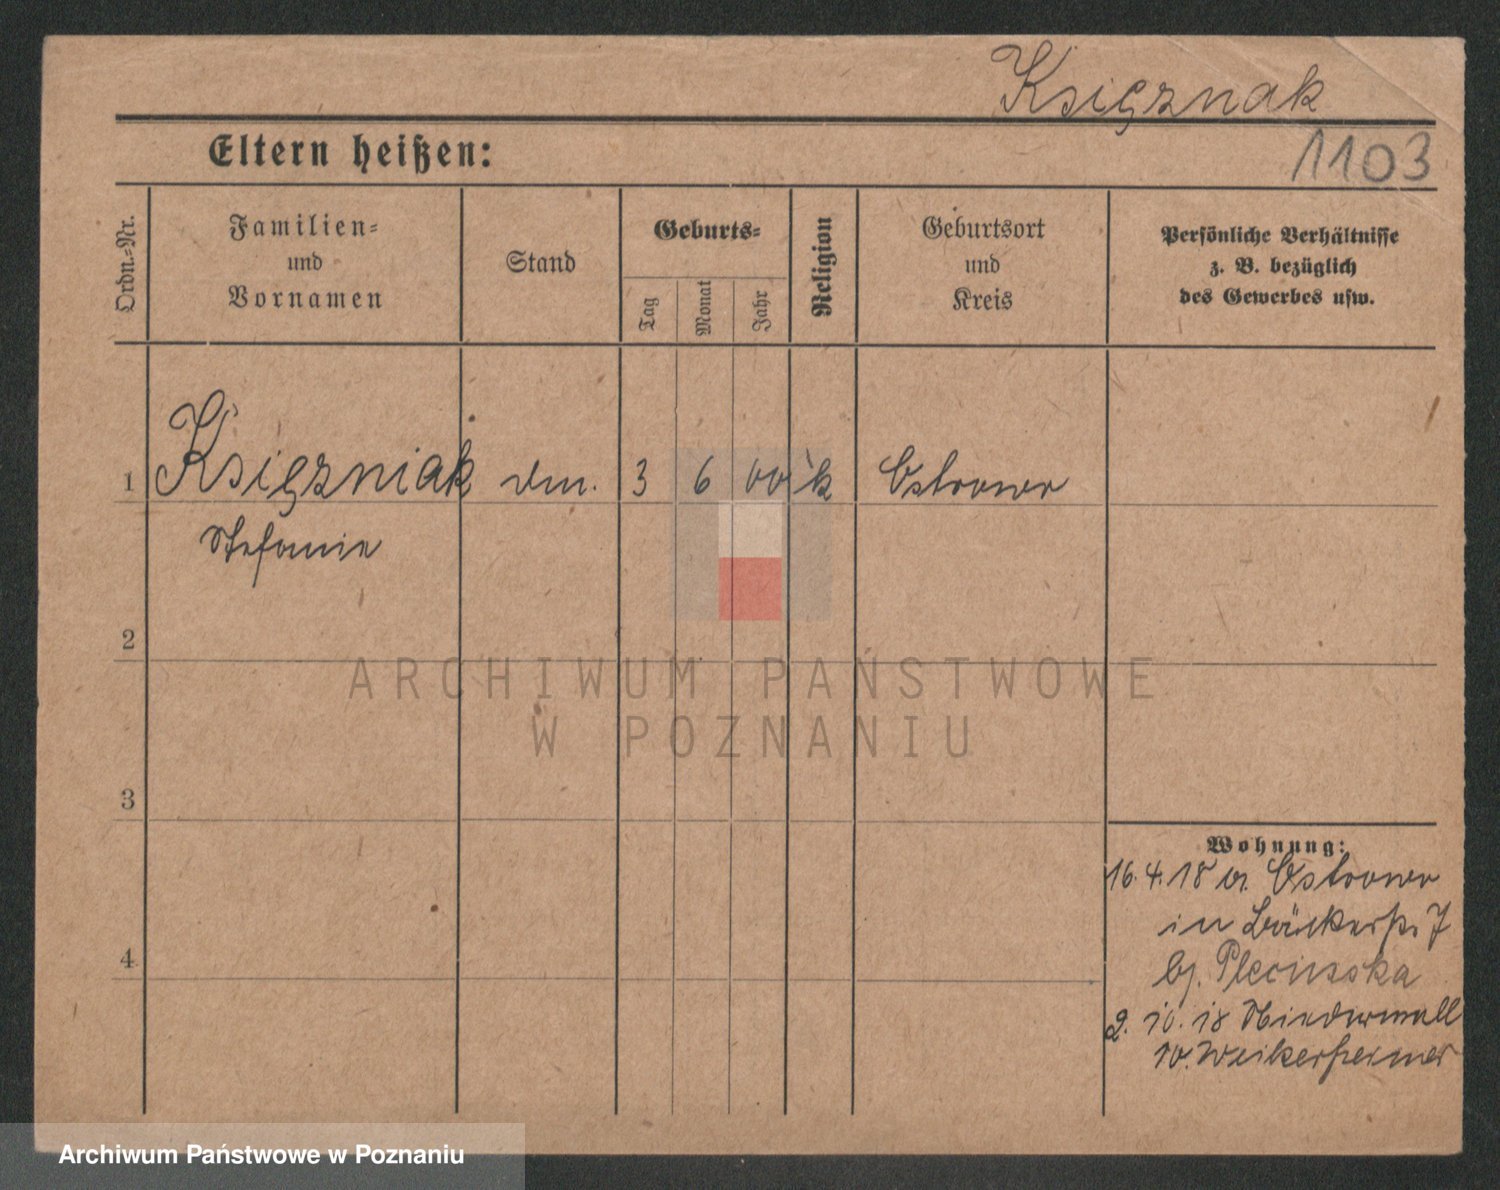 Księznak
1103
Eltern heißen:
Ordn.=Nr.
Familien=
und
Vornamen
Stand
Geburts=
Tag
Monat
Jahr
Religion
Geburtsort
und
Kreis
Persönliche Verhältnisse
z. B. bezüglich
des Gewerbes usw.
1 Księzniak 3 6 00 k Ostrowo
Stefanie
2
3
4
Wohnung:
16.4.18 v. Ostrowo
in Bäckerstr. 7
bj.
2. 10. 18 Niederwall
10.
ARCHIWUM PAŃSTWOWE
W POZNANIU
Archiwum Państwowe w Poznaniu